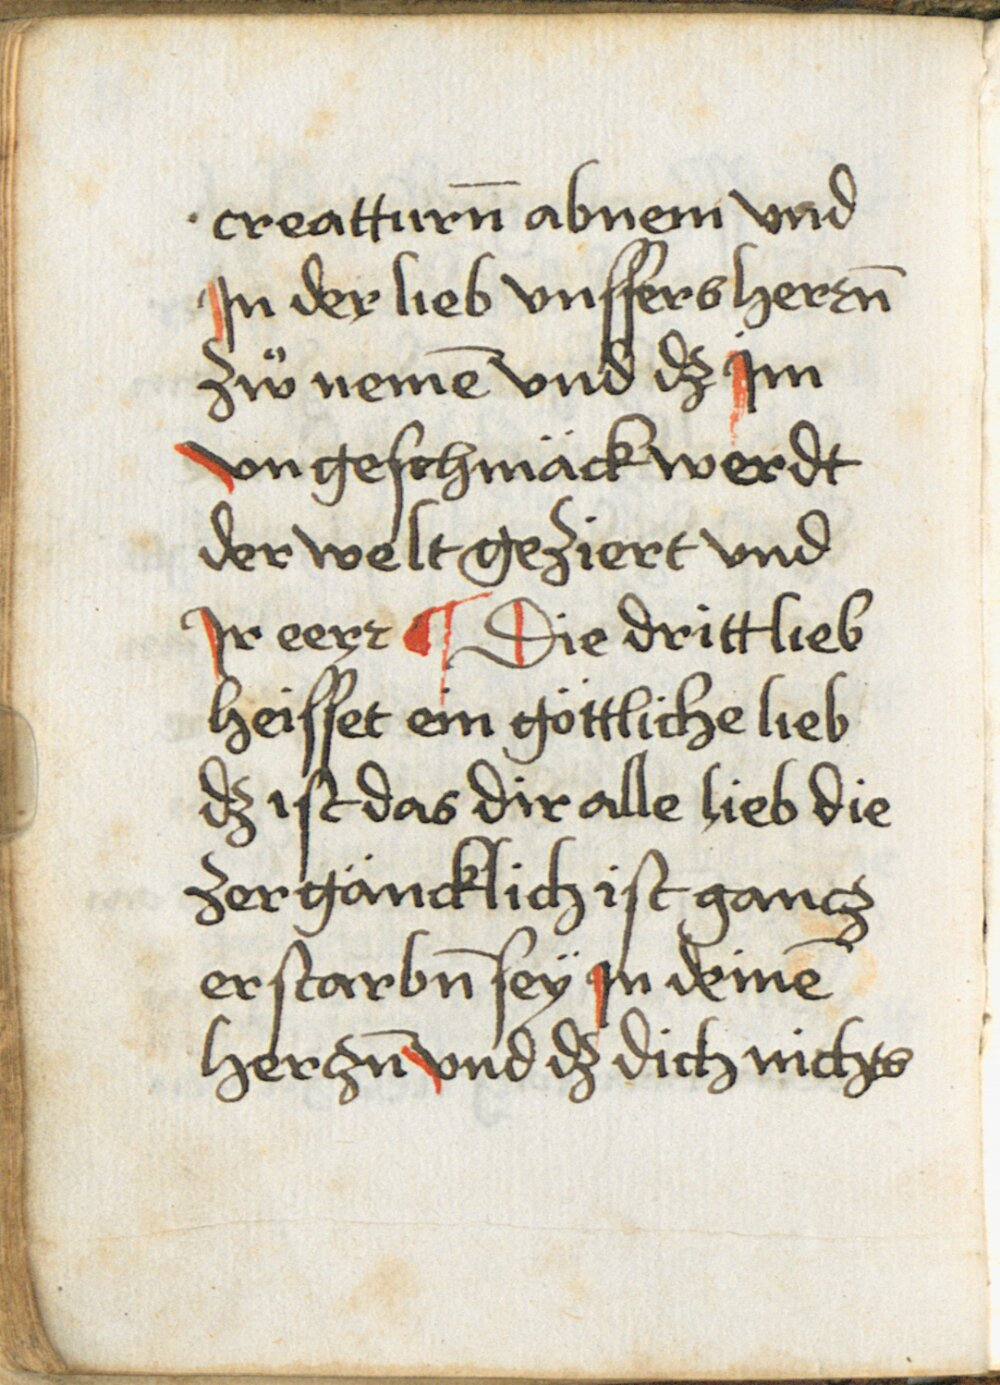 creatturn̄ abnem vnd
Jn der lieb vnſſers herzn̄
zů nemē vnd dz jm
vngeſchmäck werdt
der welt geziert vnd
Jr eerz ¶ Die dritt lieb
heiſſet ein göttliche lieb
dz iſt das dir alle lieb die
zergäncklich iſt gancz
erſtarbn̄ ſeÿ jn deinē
herzn̄ vnd dz dich nichts